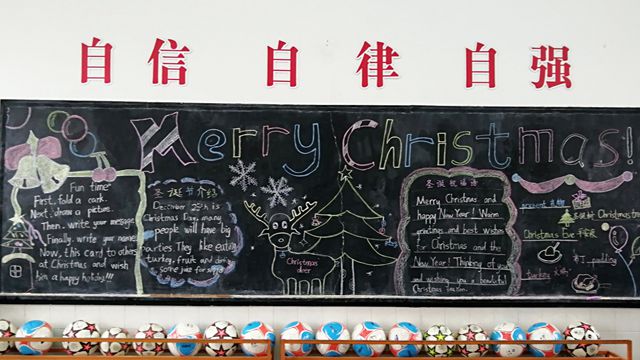 自信 自律 自强
Merry Christmas!
Fun time
First, fold a card.
Next, draw a picture.
Then, write your message.
Finally, write your name.
Now, this card to others
at Christmas and wish
him a happy holiday!!!
圣诞节介绍
December 25th is
Christmas Day, many
people will have big
parties. They like eating
turkey, fruit and
some just for
Christmas
deer
圣诞祝福语
Merry Christmas and
happy New Year! Warm
greetings and best wishes
for Christmas and the
New Year! Thinking of you
and wishing you a beautiful
Christmas
present 礼物
Christmas tree
Christmas Eve 平安夜
turkey 火鸡
布丁 pudding